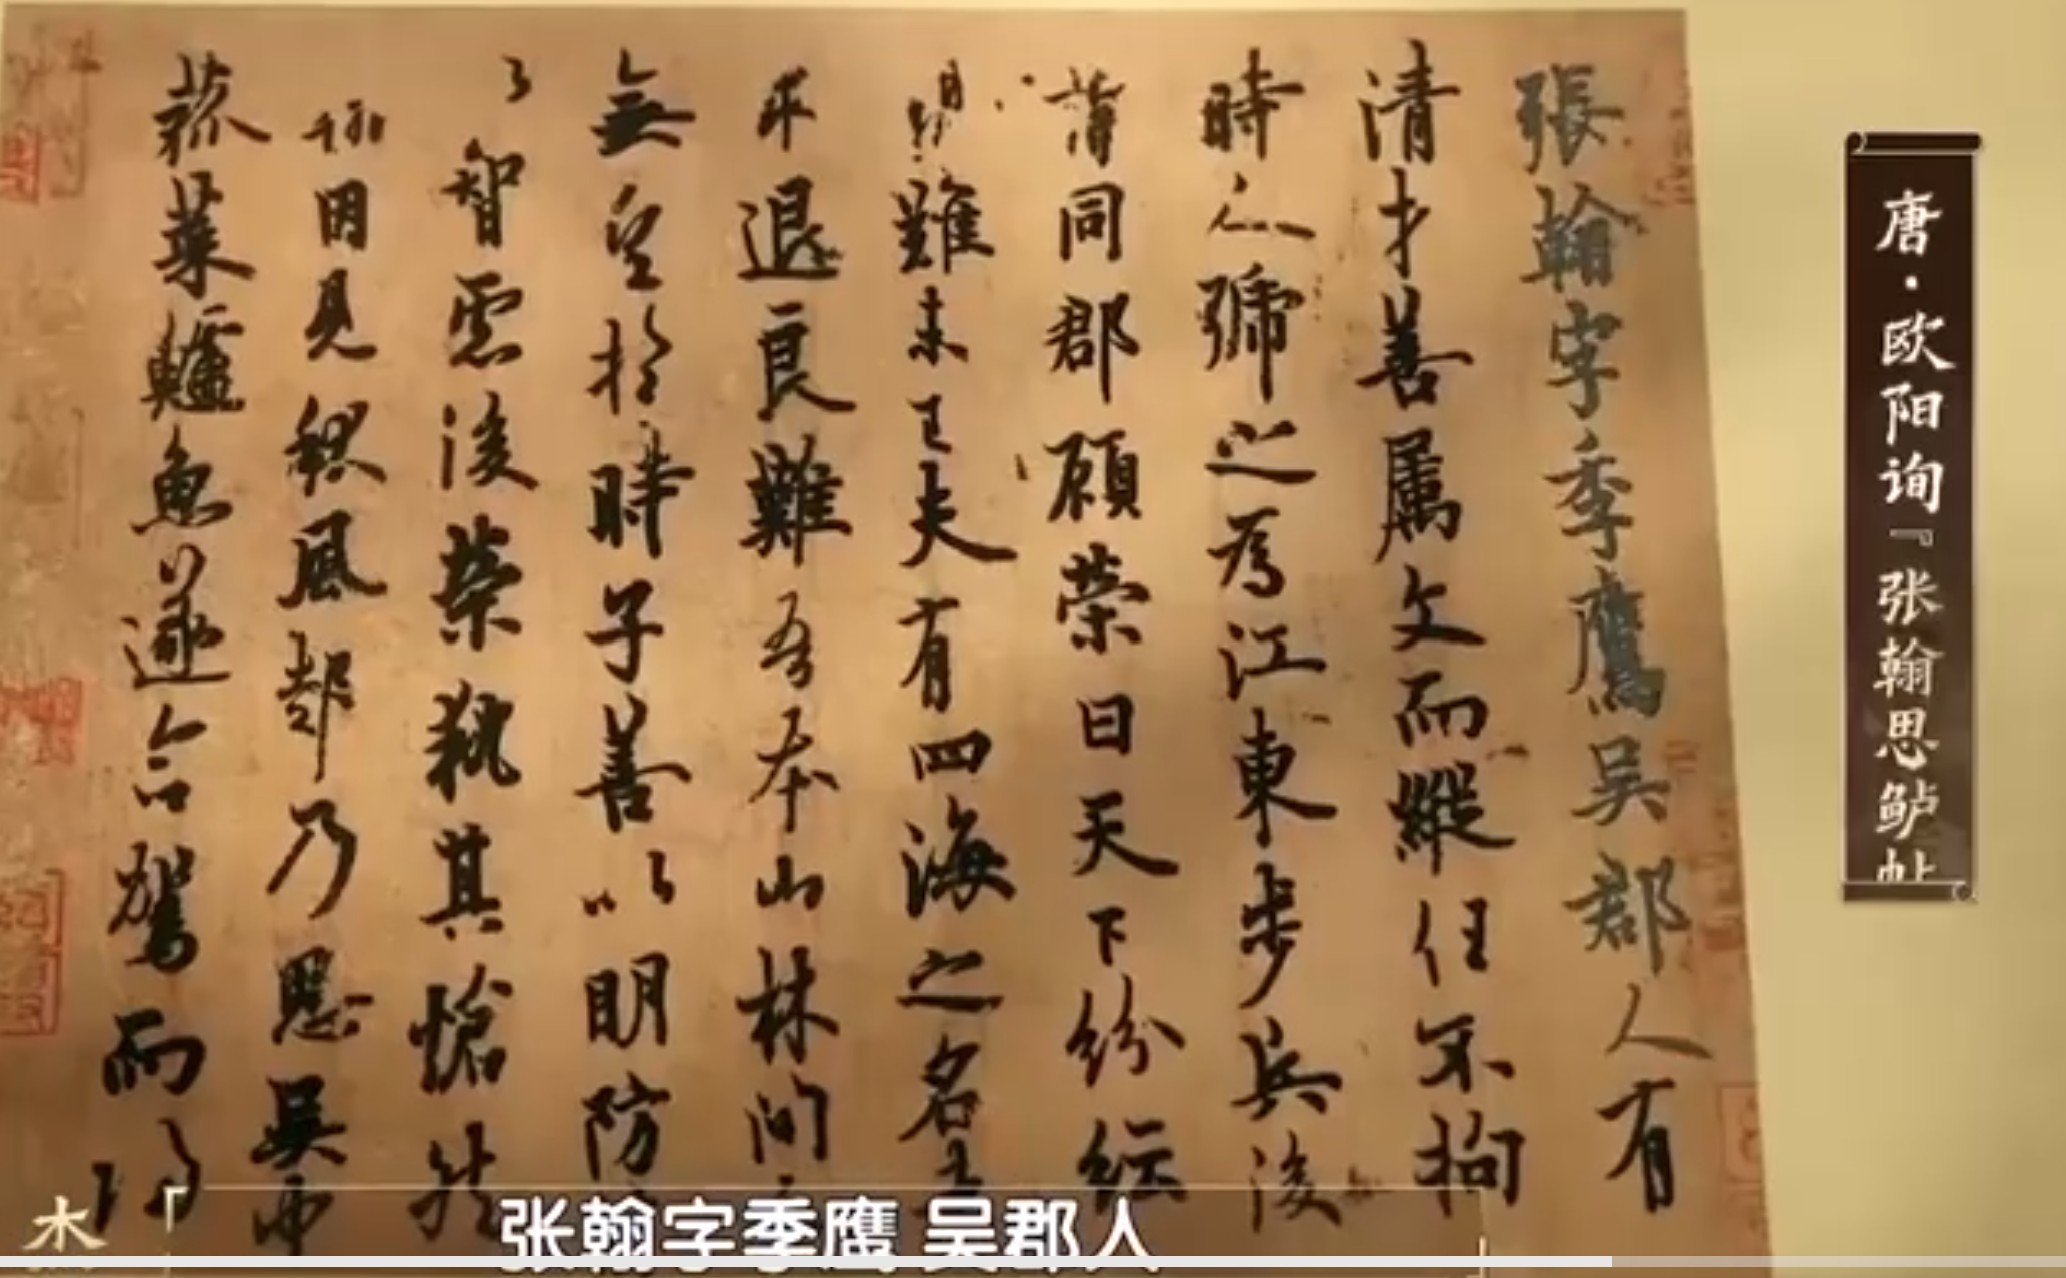 張翰字季鷹吳郡人有
清才善属文而縱任不拘
時人號之為江東步兵後
謂同郡顧榮曰天下紛紜
禍難未已夫有四海之名
求退良難吾本山林間
無望於時子善以明防
智慮後榮執其愴然
翰因見秋風起乃思吳中
菰菜鱸魚遂命駕而歸
唐·欧阳询『张翰思鲈帖
张翰字季鹰 吴郡人
木